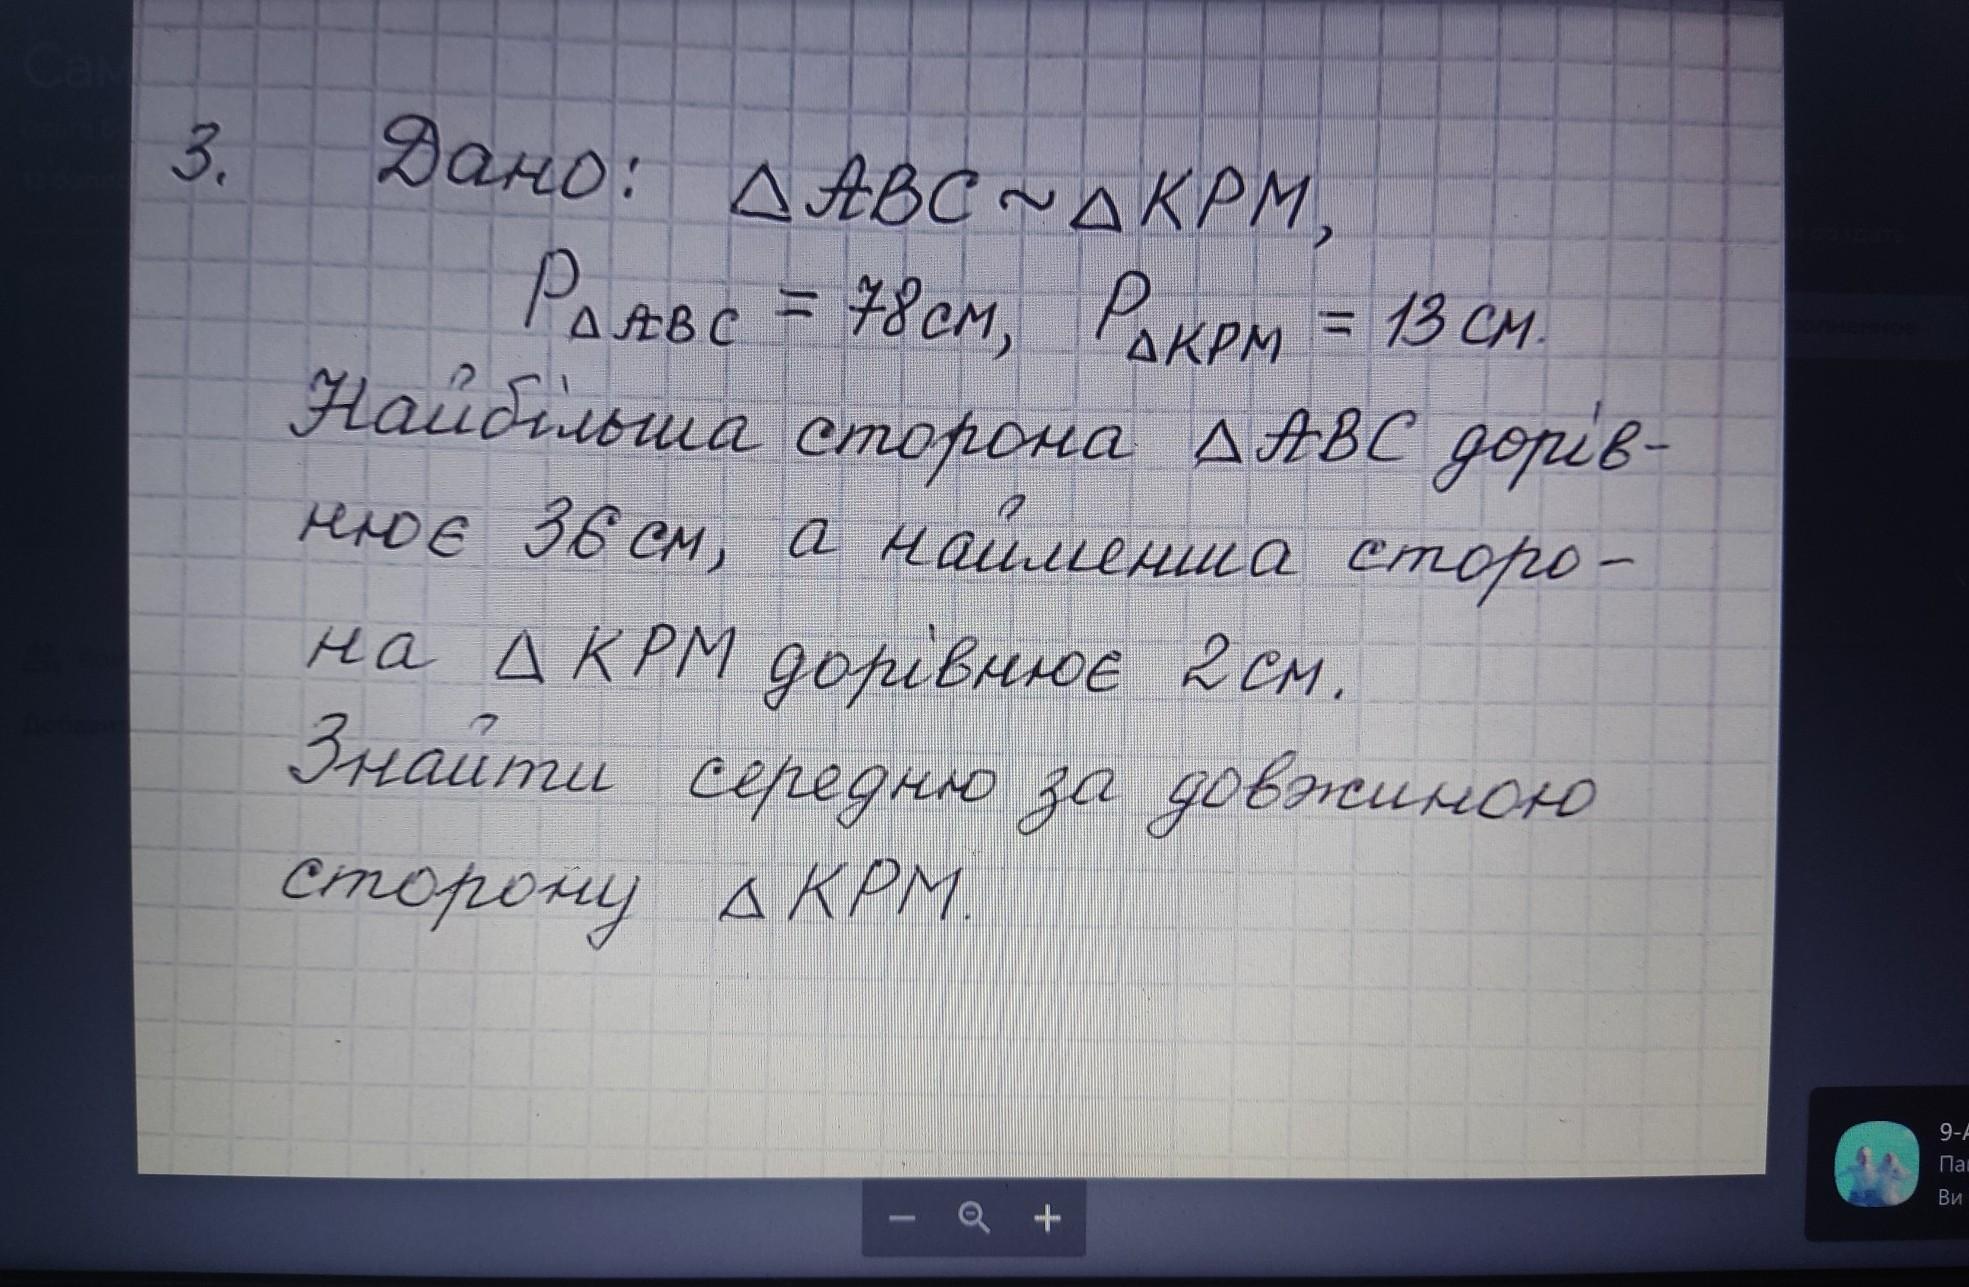 3. Дано: △ABC ~ △KPM,
P△ABC = 78 см, P△KPM = 13 см.
Найбільша сторона △ABC дорів-
нює 36 см, а найменша сторо-
на △KPM дорівнює 2 см.
Знайти середню за довжиною
сторону △KPM.
9-А
Ви